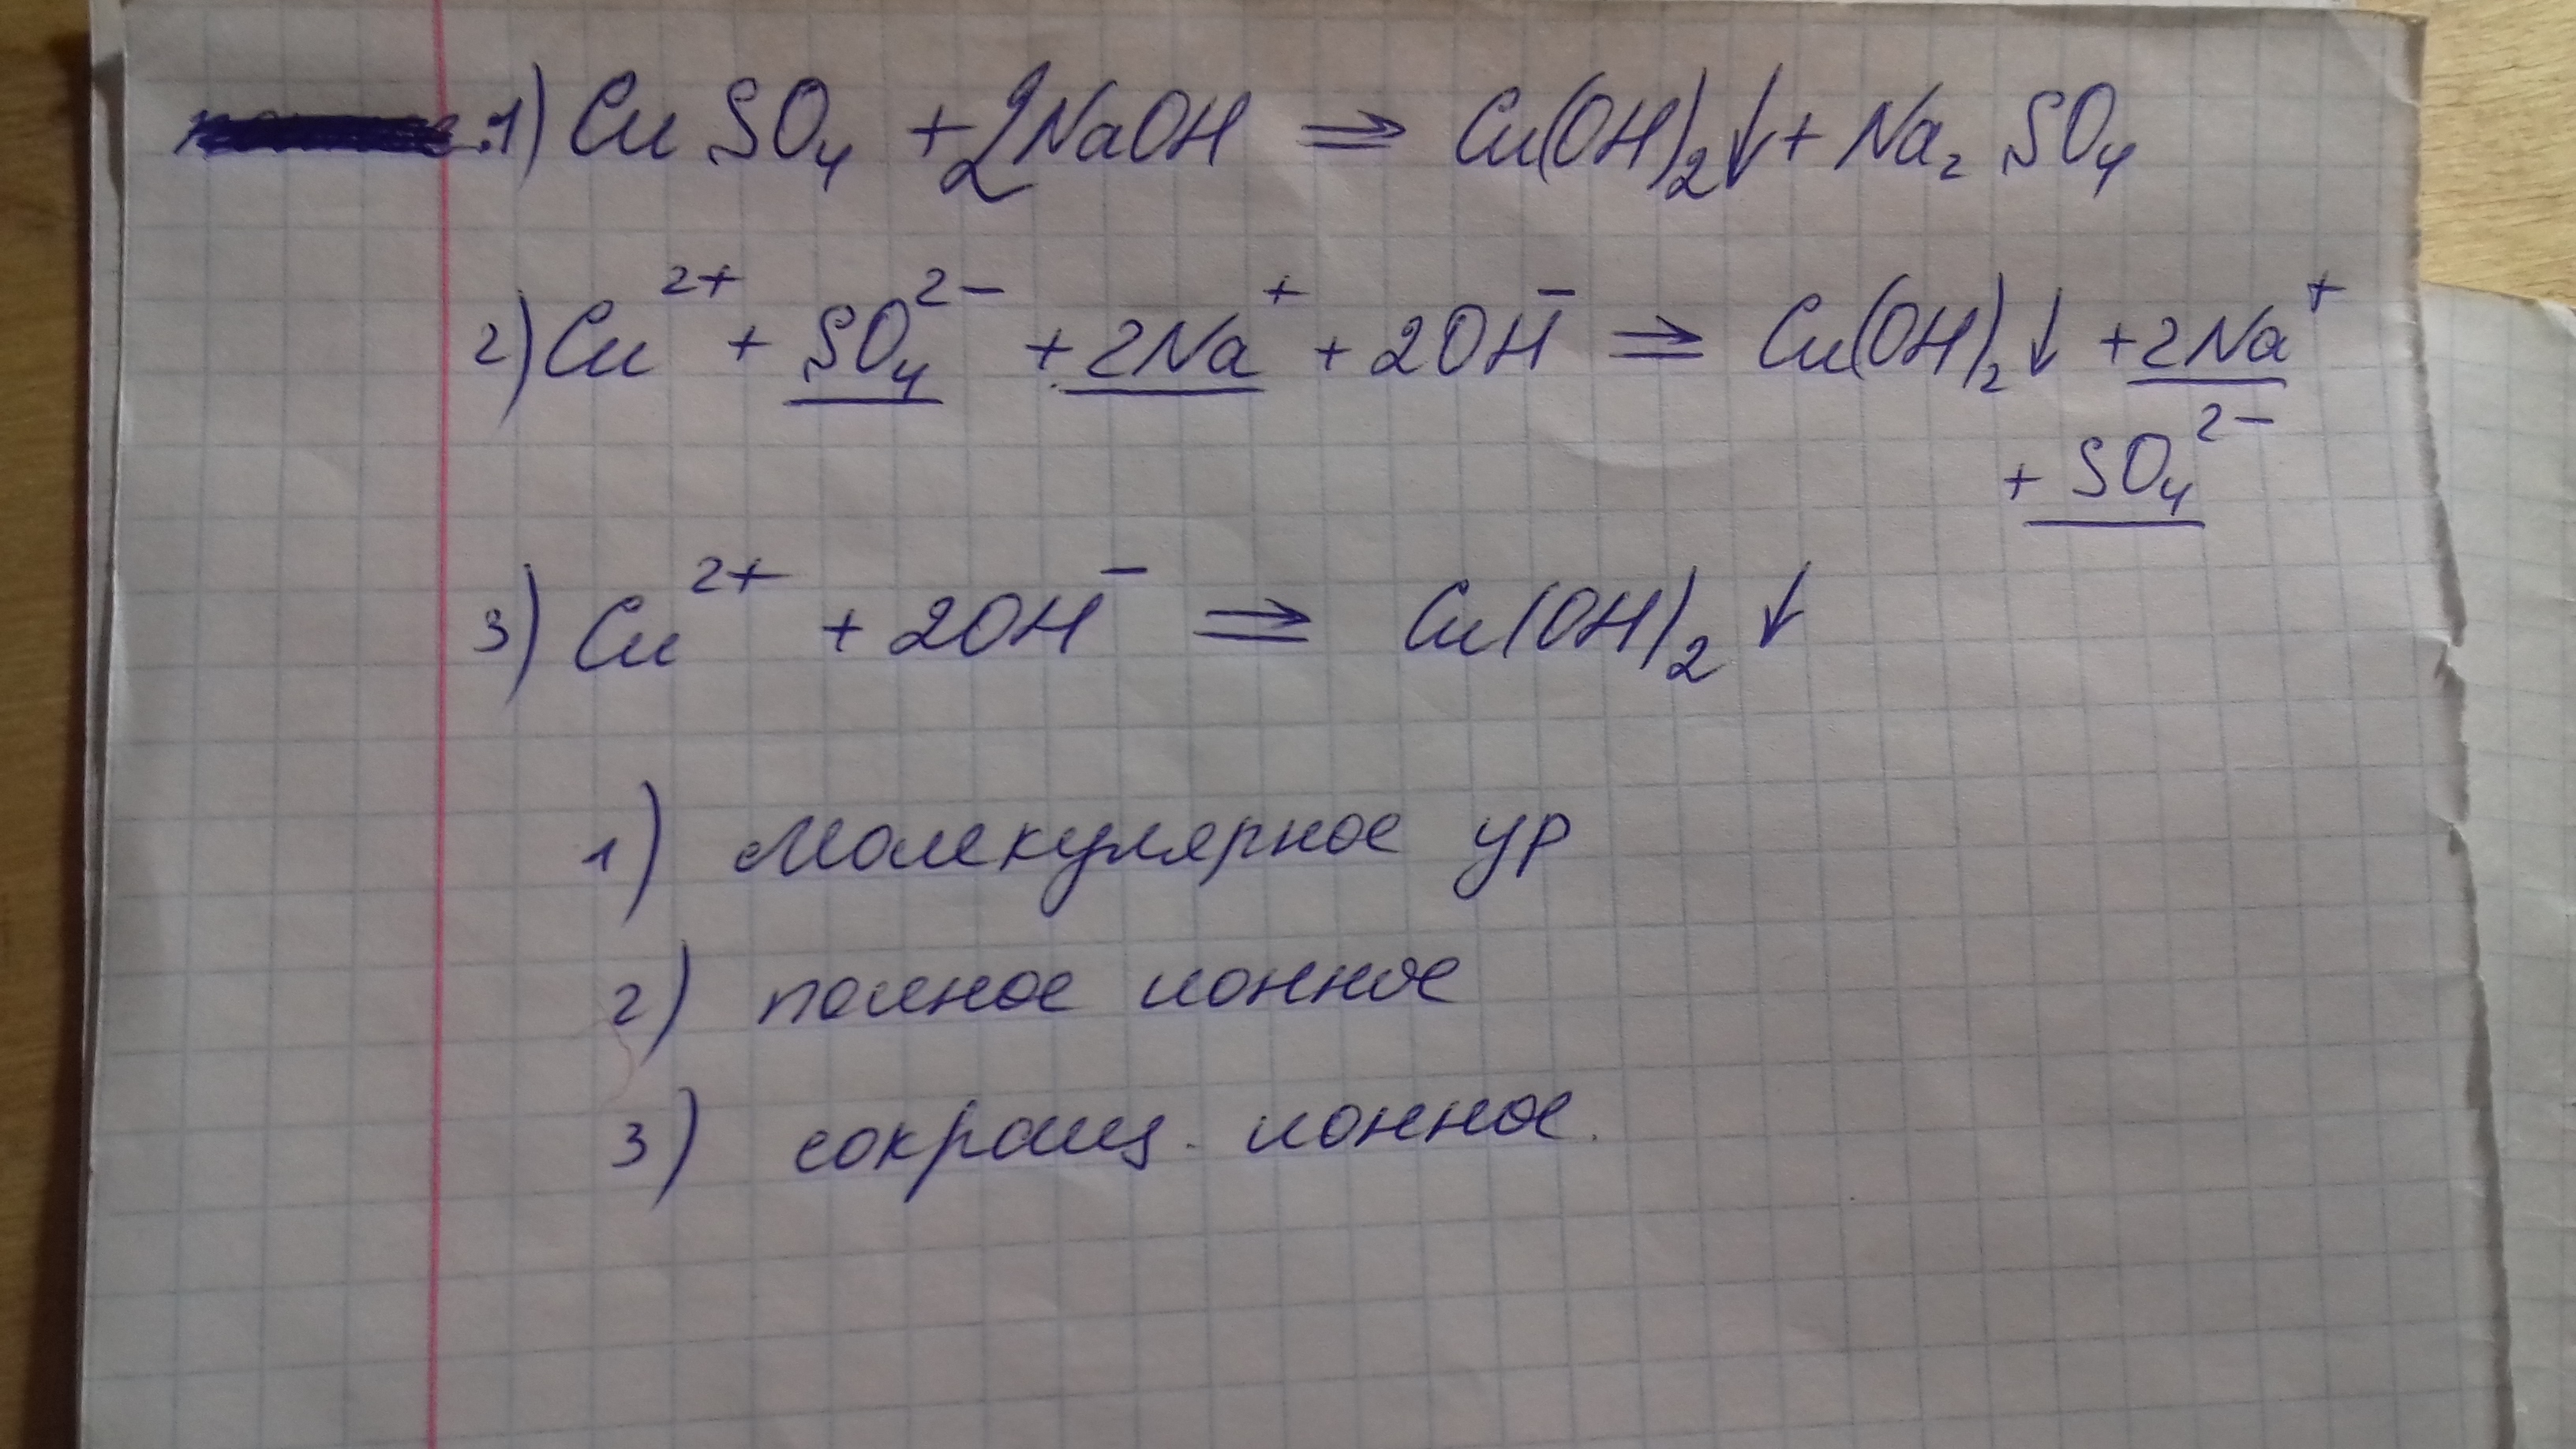 1) CuSO₄ + 2NaOH ⇒ Cu(OH)₂↓ + Na₂SO₄
2) Cu²⁺ + SO₄²⁻ + 2Na⁺ + 2OH⁻ ⇒ Cu(OH)₂↓ + 2Na⁺
+ SO₄²⁻
3) Cu²⁺ + 2OH⁻ ⇒ Cu(OH)₂↓
1) Молекулярное ур
2) полное ионное
3) сокращ. ионное.